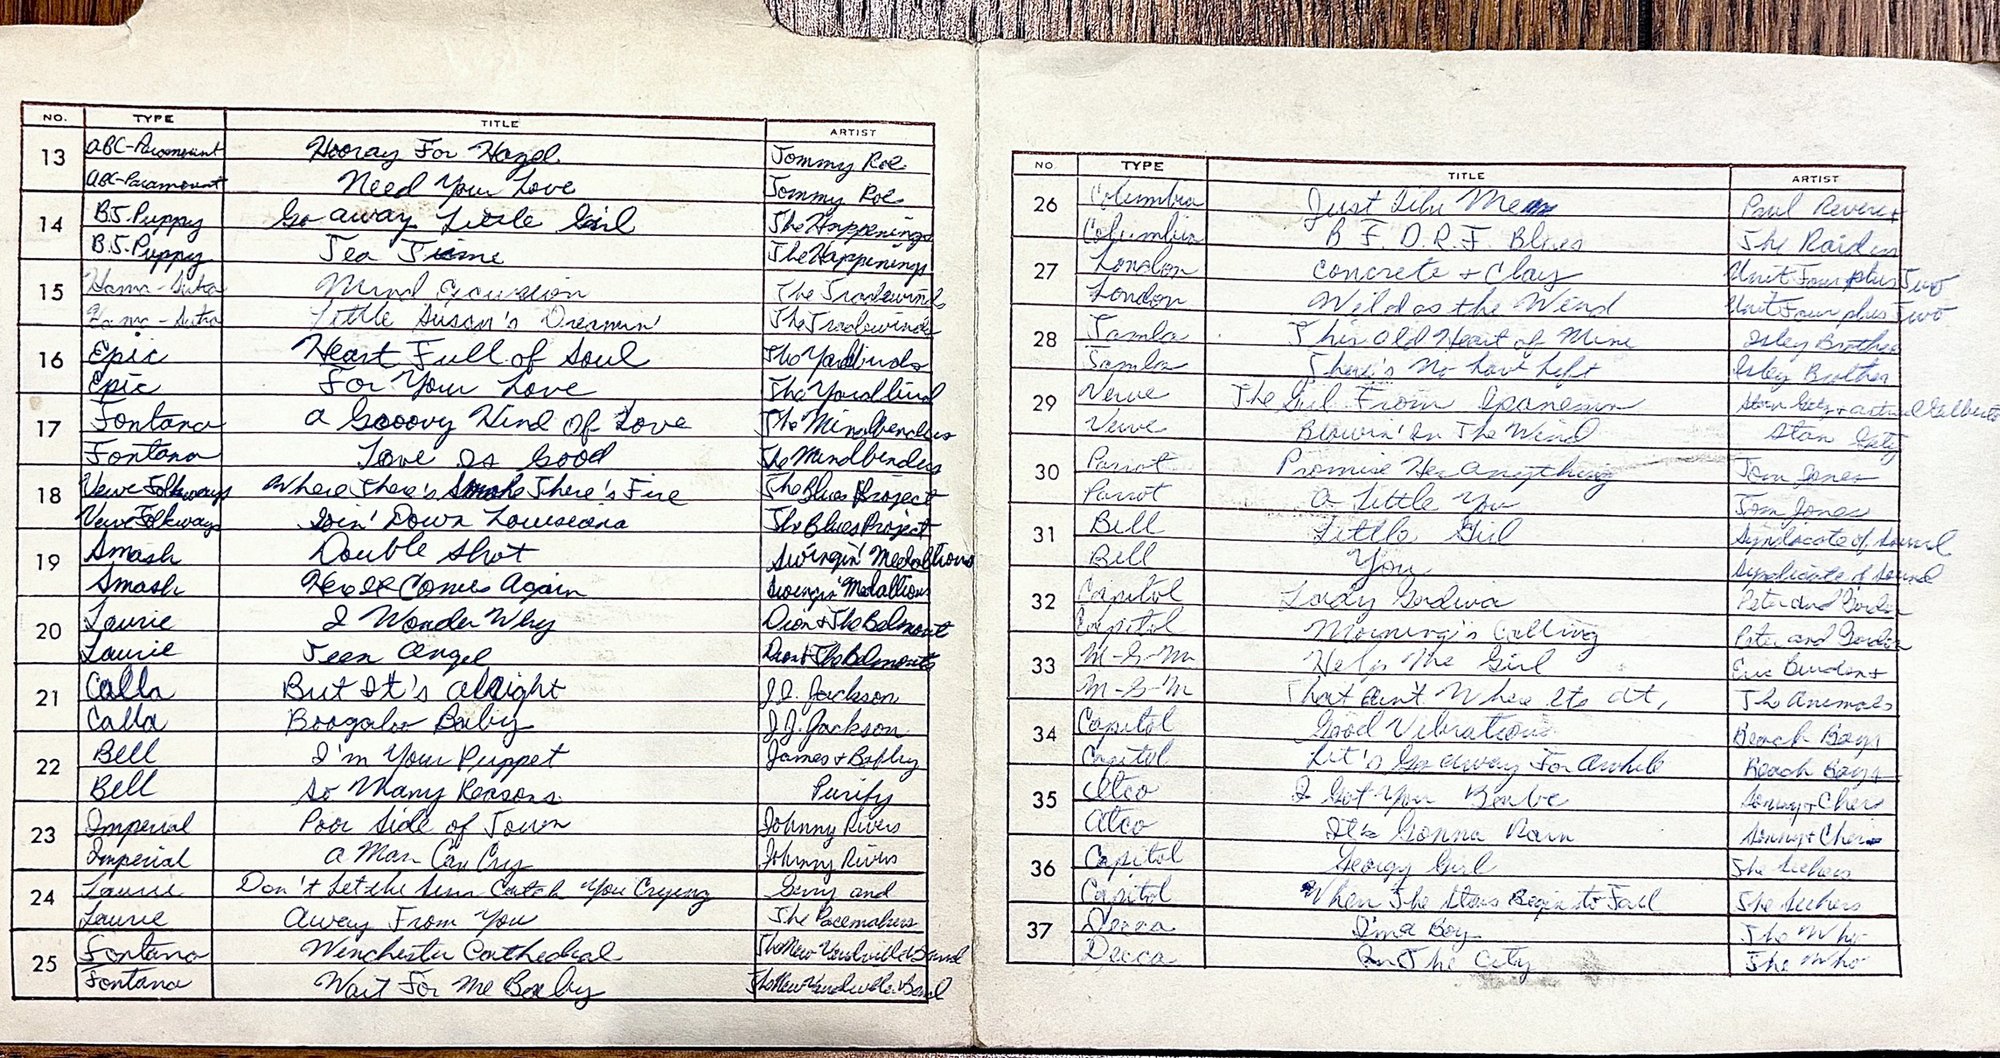 NO. TYPE TITLE ARTIST
13 ABC-Paramount Hooray For Hazel Tommy Roe
ABC-Paramount Need Your Love Tommy Roe
14 B.T. Puppy Go away Little Girl The Happenings
B.T. Puppy Tea Time The Happenings
15 Kama-Sutra Mind Excursion The Tradewinds
Kama-Sutra Little Susan's Dreamin' The Tradewinds
16 Epic Heart Full of Soul The Yardbirds
Epic For Your Love The Yardbird
17 Fontana A Grooovy Kind Of Love The Mindbenders
Fontana Love Is Good The Mindbenders
18 Verve Folkways Where There's Smoke There's Fire The Blues Project
Verve Folkways Goin' Down Louisiana The Blues Project
19 Smash Double Shot Swingin' Medallions
Smash Here It Comes Again Swingin' Medallions
20 Laurie I Wonder Why Dion & The Belmont
Laurie Teen Angel Dion & The Belmonts
21 Calla But It's Alright J.J. Jackson
Calla Boogaloo Baby J.J. Jackson
22 Bell I'm Your Puppet James + Bobby
Bell So Many Reasons Purify
23 Imperial Poor Side of Town Johnny Rivers
Imperial A Man Can Cry Johnny Rivers
24 Laurie Don't Let the Sun Catch You Crying Gerry and
Laurie Away From You The Pacemakers
25 Fontana Winchester Cathedral The New Vaudville Band
Fontana Wait For Me Baby The New Vaudville Band
NO. TYPE TITLE ARTIST
26 Columbia Just Like Me Paul Revere +
Columbia B. F. D. R. F. Blues The Raiders
27 London Concrete + Clay Unit Four plus Two
London Wild as the Wind Unit Four plus Two
28 Tamla This Old Heart of Mine Isley Brother
Tamla There's No Love Left Isley Brother
29 Verve The Girl From Ipanema Stan Getz + Astrud Gilberto
Verve Blowin' In The Wind Stan Getz
30 Parrot Promise Her Anything Tom Jones
Parrot A Little You Tom Jones
31 Bell Little Girl Syndicate of Sound
Bell You Syndicate of Sound
32 Capitol Lady Godiva Peter and Gordon
Capitol Morning's Calling Peter and Gordon
33 M-G-M Help Me Girl Eric Burdon +
M-G-M That Ain't Where Its At, The Animals
34 Capitol Good Vibrations Beach Boys
Capitol Let's Go Away For Awhile Beach Boys
35 Atco I Got You Babe Sonny + Cher
Atco It's Gonna Rain Sonny + Cher
36 Capitol Georgy Girl The Seekers
Capitol When The Stars Begin to Fall The Seekers
37 Decca I'm a Boy The Who
Decca In The City The Who